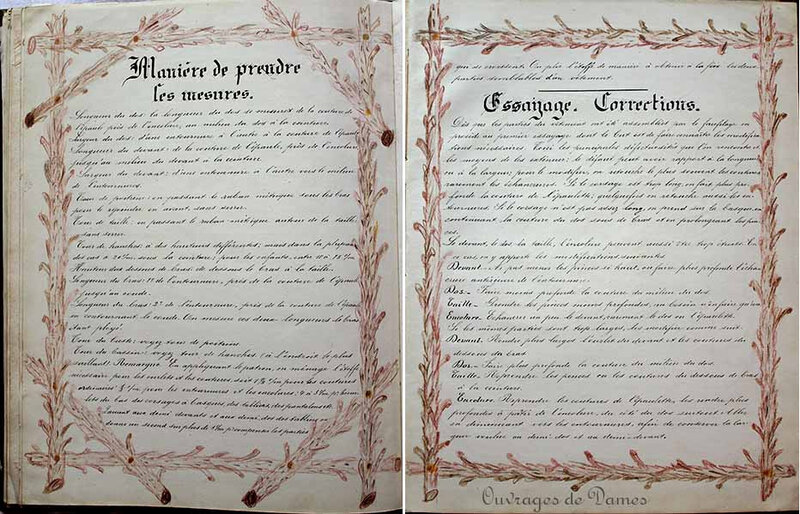 Manière de prendre
les mesures.
Longueur du dos: la longueur du dos se mesure de la couture de
l'épaule près de l'encolure, au milieu du dos à la ceinture.
Largeur du dos: d'une entournure à l'autre à la couture de l'épaule
Longueur du devant: de la couture de l'épaule, près de l'encolure
jusqu'au milieu du devant à la ceinture
Largeur du devant: d'une entournure à l'autre vers le milieu
de l'entournure.
Tour de poitrine: en passant le ruban métrique sous les bras
pour le rejoindre en avant, sans serrer.
Tour de taille: en passant le ruban métrique autour de la taille
sans serrer.
Tour de hanches: à des hauteurs différentes; mais dans la plupart
des cas à sous la ceinture; pour les enfants, entre 10 à 15
Hauteur des dessous de bras: de dessous le bras à la taille.
Longueur du bras: 1° de l'entournure, près de la couture de l'épaule
jusqu'au coude.
Longueur du bras: 2° de l'entournure, près de la couture de l'épaule
en contournant le coude. On mesure ces deux longueurs le bras
étant ployé.
Tour du buste: voyez tour de poitrine
Tour du bassin: voyez tour de hanches (à l'endroit le plus
saillant). Remarque: En appliquant le patron, on ménage l'étoffe
nécessaire pour les ourlets et les coutures soit pour les coutures
ordinaires; pour les entournures et les encolures; 4 à 5 pour
lets du bas des corsages à basques, des tabliers, des pantalons
quant aux demi-devants et aux demi-dos des tabliers on
donne un second sur plus de pour les parties
qui se croisent. On plie l'étoffe de manière à obtenir à la fois les deux
parties semblables d'un vêtement.
Essayage. Corrections.
Dès que les parties du vêtement ont été assemblées par le faufilage on
procède au premier essayage dont le but est de faire connaître les modifica-
tions nécessaires. Voici les principales défectuosités que l'on rencontre et
les moyens de les enlever: le défaut peut avoir rapport à la longueur
ou à la largeur; pour le modifier, on retouche le plus souvent les coutures
rarement les échancrures. Si le corsage est trop long, on fait plus pro-
fonde la couture de l'épaulette, quelquefois on retouche aussi les en-
tournures. Si le corsage n'est pas assez long, on prend sur les basques en
continuant la couture du dos sous de bras et en prolongeant les pin-
ces.
Le devant, le dos, la taille, l'encolure peuvent aussi être trop étroits. En
ce cas on y apporte les modifications suivantes
Devant. - pas mener les pinces si haut, en faire plus profonde l'échan-
crure antérieure de l'entournure.
Dos. - Faire moins profonde la couture du milieu du dos.
Taille. - Prendre les pinces moins profondes, au besoin n'en faire qu'une
Encolure - Echancrer un peu le devant, rarement le dos ou l'épaulette.
Si les mêmes parties sont trop larges, les modifier comme suit:
Devant. Rendre plus larges l'ourlet du devant et les coutures du
dessous du bras.
Dos. - Faire plus profonde la couture du milieu du dos.
Taille. Reprendre les pinces et les coutures du dessous de bras
à la ceinture.
Encolure. Reprendre les coutures de l'épaulette, les rendre plus
profondes à partir de l'encolure, du côté du dos surtout et
en diminuant vers les entournures, afin de conserver la lar-
geur voulue au demi-dos et au demi-devant.
Ouvrages de Dames